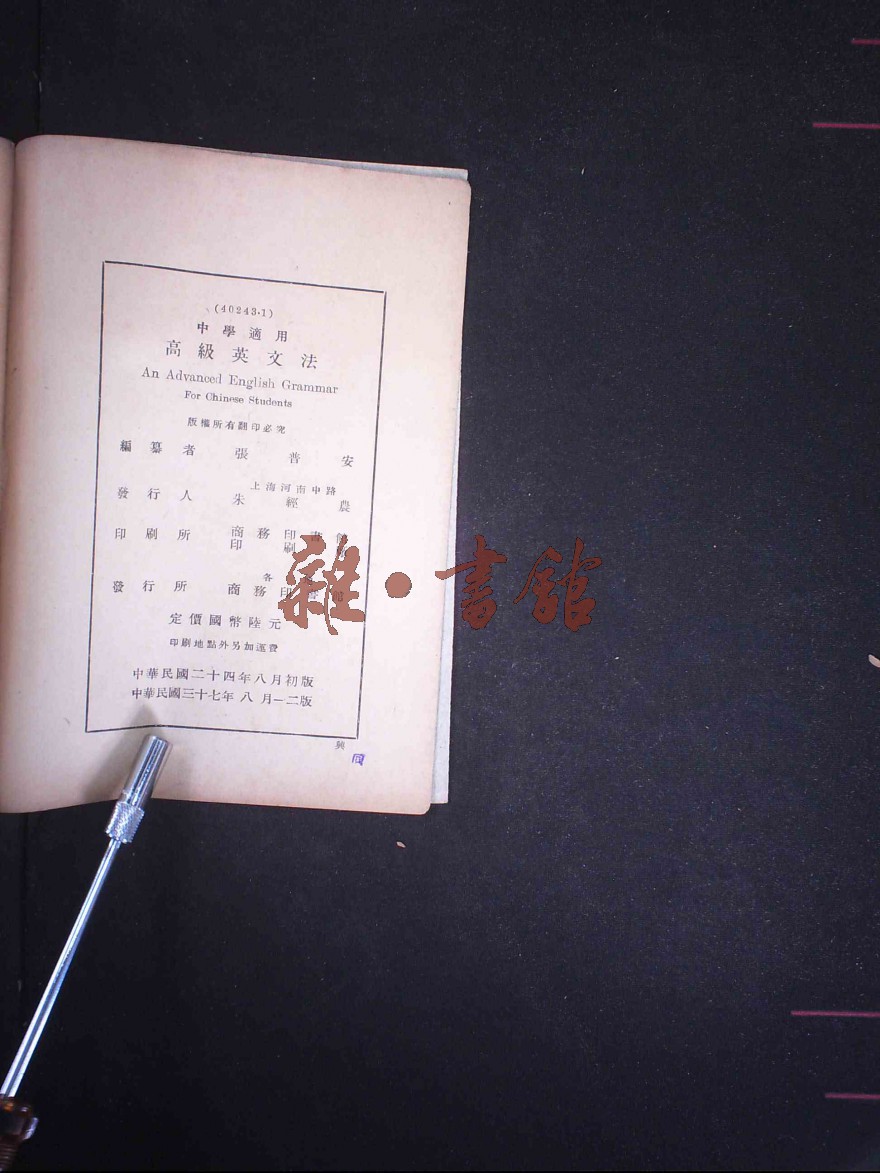 (40243·1)
中學適用
高級英文法
An Advanced English Grammar
For Chinese Students
版權所有翻印必究
編纂者 張普安
上海河南中路
發行人 朱經農
印刷所 商務印書
印刷
各
發行所 商務印書館
定價國幣陸元
印刷地點外另加運費
中華民國二十四年八月初版
中華民國三十七年八月一二版
興
同
雜·書館